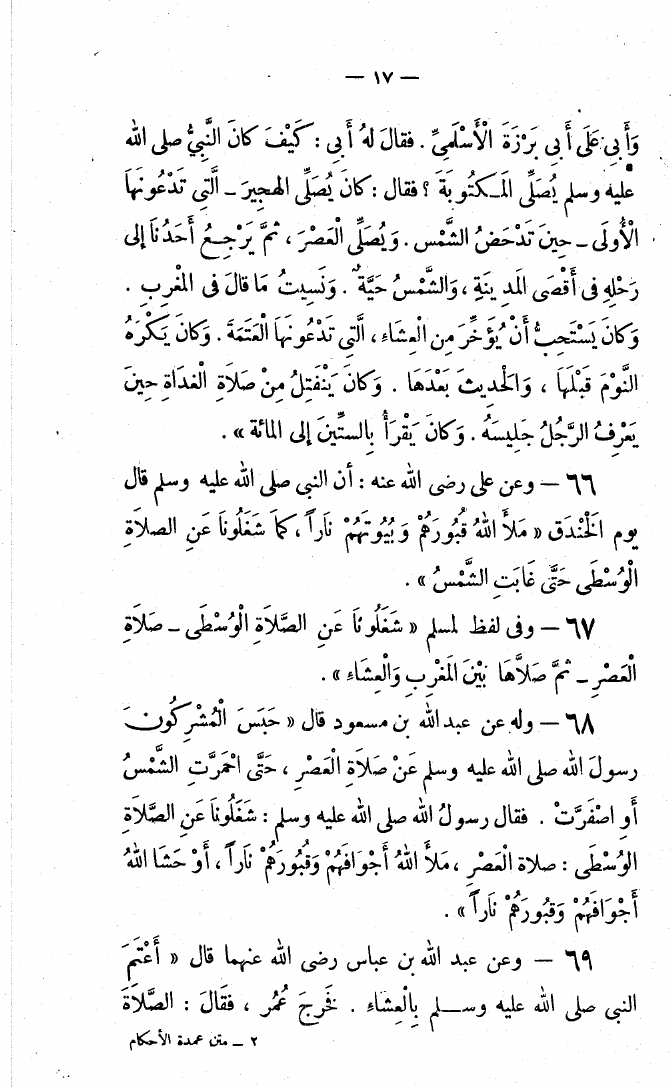 — ١٧ —
وَأَبِي عَلَى أَبِي بَرْزَةَ الْأَسْلَمِيِّ . فقالَ لهُ أَبِي : كَيْفَ كانَ النَّبِيُّ صلى الله
عليه وسلم يُصَلِّى المَكْتُوبَةَ ؟ فقال : كانَ يُصَلِّى الهجِيرَ – الَّتِى تَدْعُونَهَا
الْأُولَى – حِينَ تَدْحَضُ الشَّمْسِ . وَيُصَلِّى الْعَصْرَ ، ثمَّ يَرْجِعُ أَحَدُنَا إلى
رَحْلِهِ فى أَقْصَى المَدِينَةِ ، وَالشَّمْسُ حَيَّةٌ . وَنَسِيتُ مَا قالَ فى المَغْرِبِ .
وَكانَ يَسْتَحِبُّ أَنْ يُؤَخِّرَ مِنَ الْعِشَاءِ ، الَّتِى تَدْعُونَهَا الْعَتَمَةَ . وَكانَ يَكْرَهُ
النَّوْمَ قَبْلَهَا ، وَالْحَدِيثَ بَعْدَهَا . وَكانَ يَنْفَتِلُ مِنْ صَلَاةِ الْغَدَاةِ حِينَ
يَعْرِفُ الرَّجُلُ جَلِيسَهُ . وَكانَ يَقْرَأُ بِالسِّتِّينَ إلى المائة » .
٦٦ – وعن على رضى الله عنه : أن النبى صلى الله عليه وسلم قال
يوم الْخَنْدَقِ « مَلَأَ اللهُ قُبُورَهُمْ وَبُيُوتَهُمْ نَاراً ، كمَا شَغَلُونَا عَنِ الصلَاةِ
الْوُسْطَى حَتَّى غَابَتِ الشَّمْسُ » .
٦٧ – وفى لفظ لمسلم « شَغَلُونَا عَنِ الصَّلَاةِ الْوُسْطَى – صَلَاةِ
الْعَصْرِ – ثمَّ صَلَّاهَا بَيْنَ المَغْرِبِ وَالْعِشَاءِ » .
٦٨ – وله عن عبد الله بن مسعود قال « حَبَسَ الْمُشْرِكُونَ
رسولَ الله صلى الله عليه وسلم عَنْ صَلَاةِ الْعَصْرِ ، حَتَّى احْمَرَّتِ الشَّمْسُ
أَوِ اصْفَرَّتْ . فقال رسولُ الله صلى الله عليه وسلم : شَغَلُونَا عَنِ الصَّلَاةِ
الْوُسْطَى : صلاة الْعَصْرِ ، مَلَأَ اللهُ أَجْوَافَهُمْ وَقُبُورَهُمْ نَاراً ، أَوْ حَشَا اللهُ
أَجْوَافَهُمْ وَقُبُورَهُمْ نَاراً » .
٦٩ – وعن عبد الله بن عباس رضى الله عنهما قال « أَعْتَمَ
النبى صلى الله عليه وسلم بِالْعِشَاءِ . فَخَرَجَ عُمَرُ ، فَقَالَ : الصَّلَاةَ
٢ – متن عمدة الأحكام